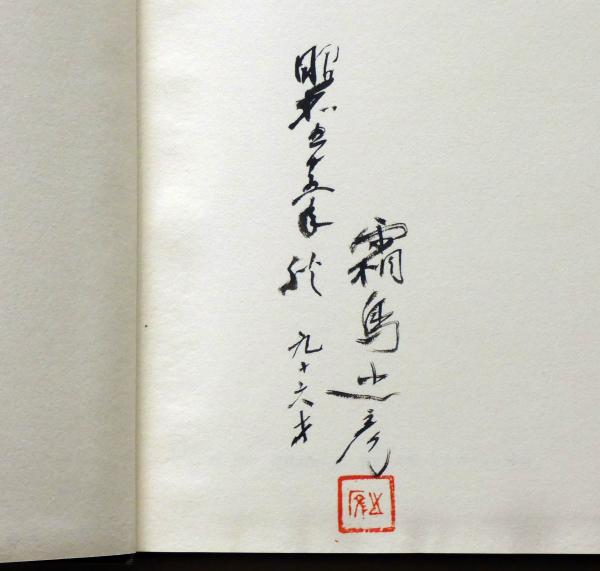 霜鳥之彦
昭和五十五年秋 九十六才
之彦